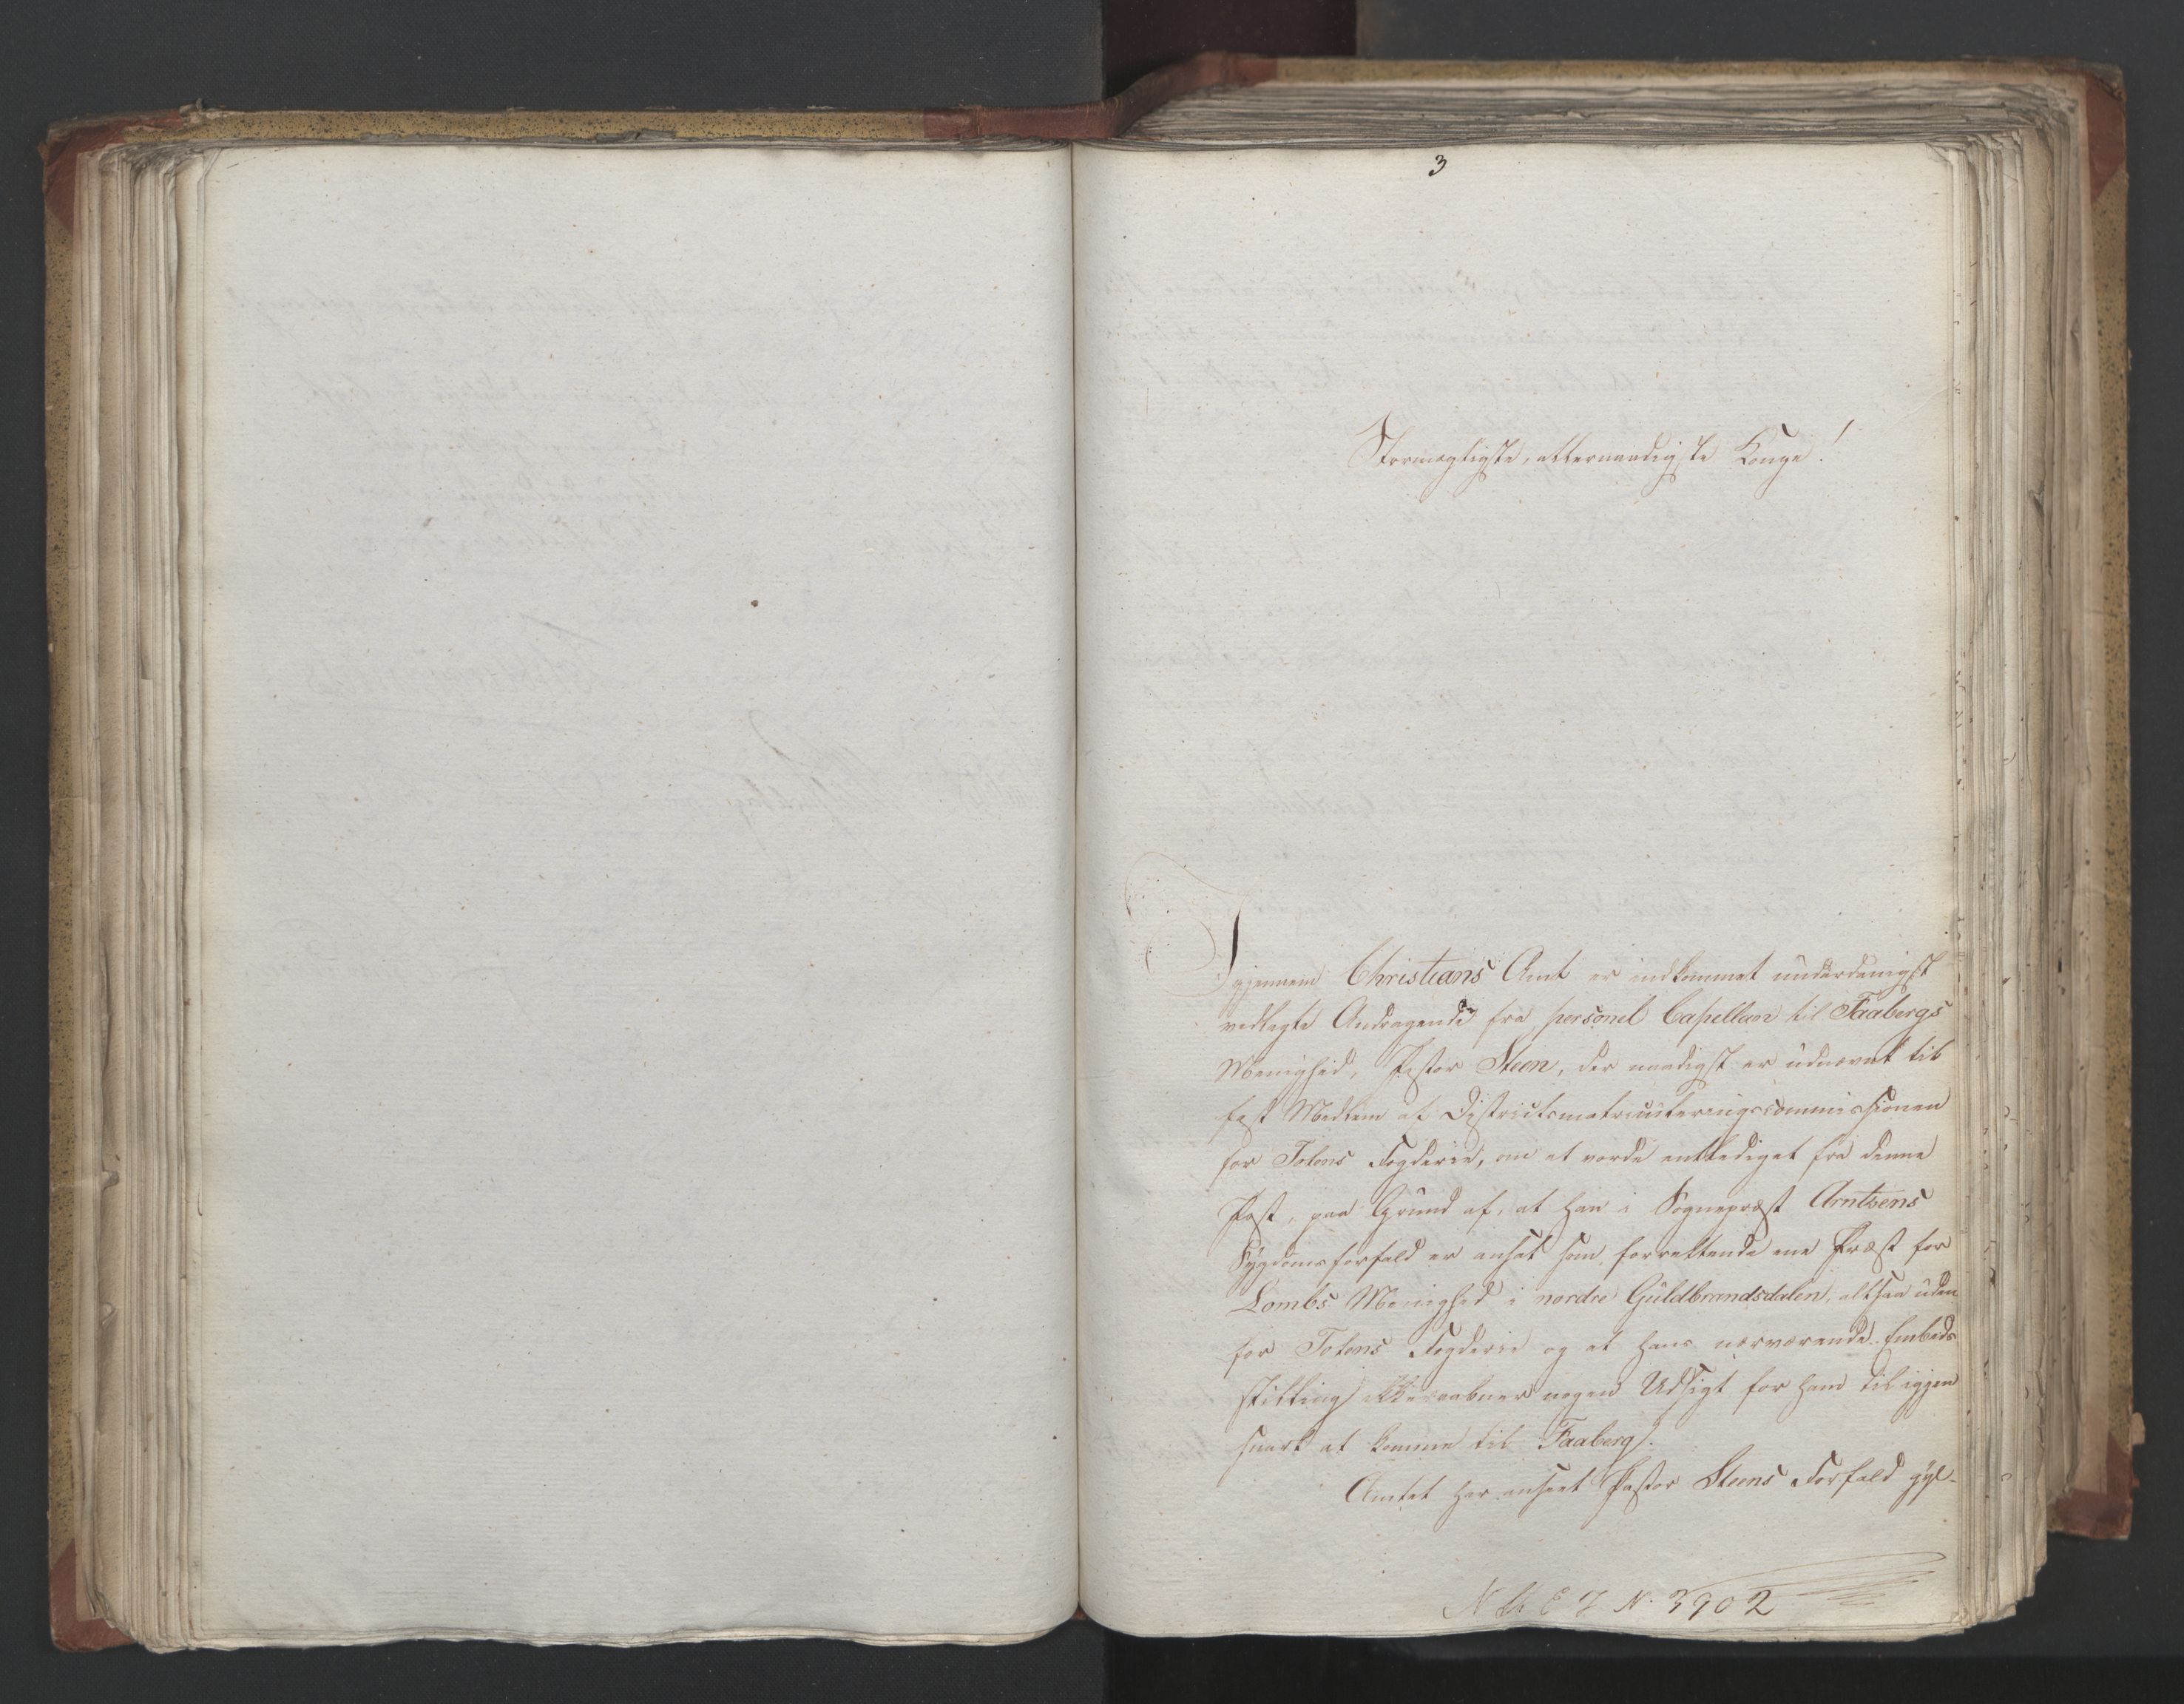 3
Stormægtigste, allernaadigste Konge!
Igjennem Christians Amt er indkommet underdanigst
vedlagte Andragende fra personel Capellan til Faabergs
Menighed, Pastor Steen, der naadigst er udnævnt til
fast Medlem af Districtsmatriculeringscommissionen
for Totens Fogderie, om at vorde entlediget fra denne
Post, paa Grund af, at han i Sognepræst Arntzens
Sygdomsforfald er ansat som forrettende ene Præst for
Lombs Menighed i nordre Guldbrandsdalen, altsaa uden
for Totens Fogderie og at hans nærværende Embeds
stilling ikke aabner nogen Udsigt for ham til igjen
snart at komme til Faaberg.
Amtet har anseet Pastor Steens Forfald gyl-
N. 3902